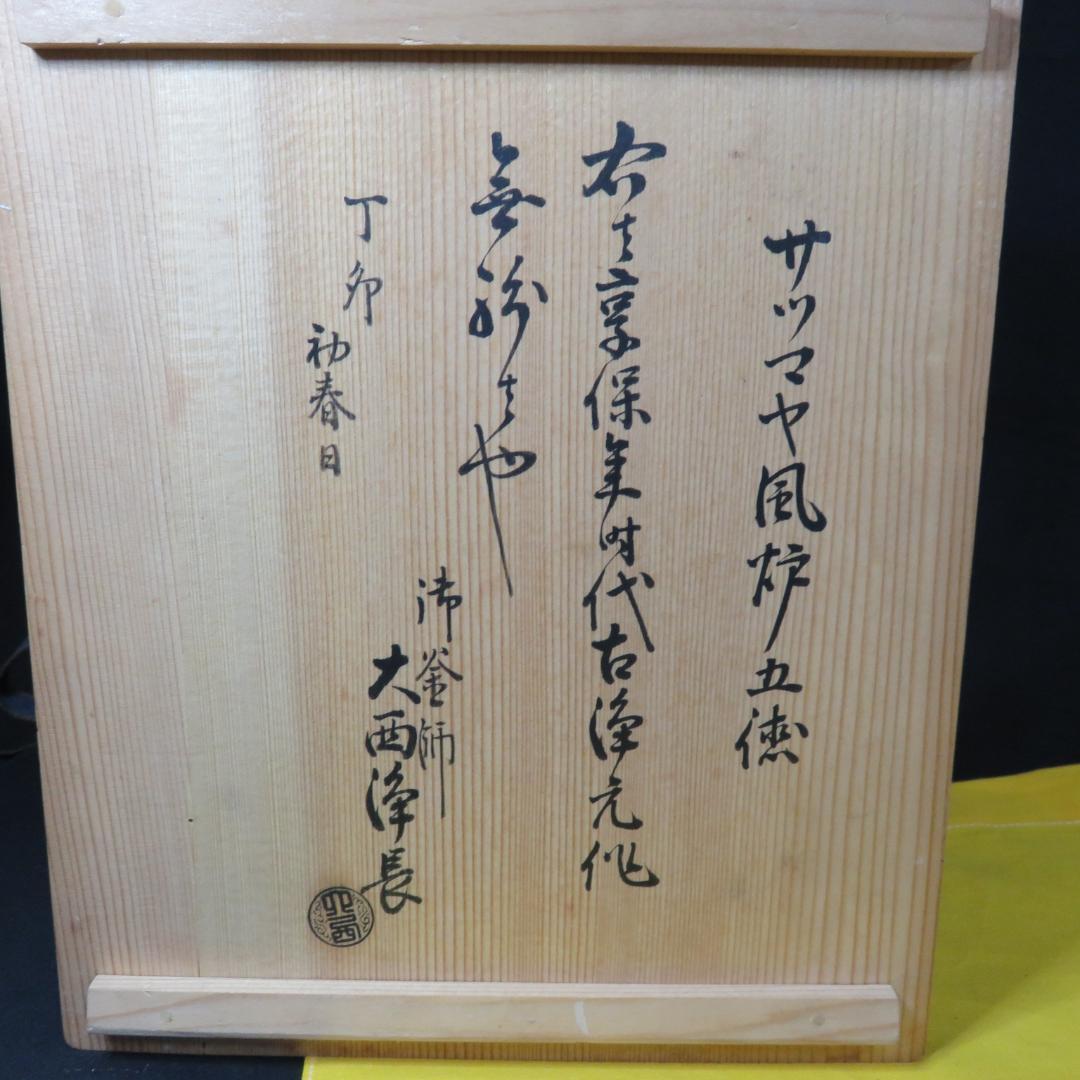 サツマヤ風炉五徳
右者享保年時代古浄元作
無紛者也
丁卯
初春日
御釜師
大西浄長
大西